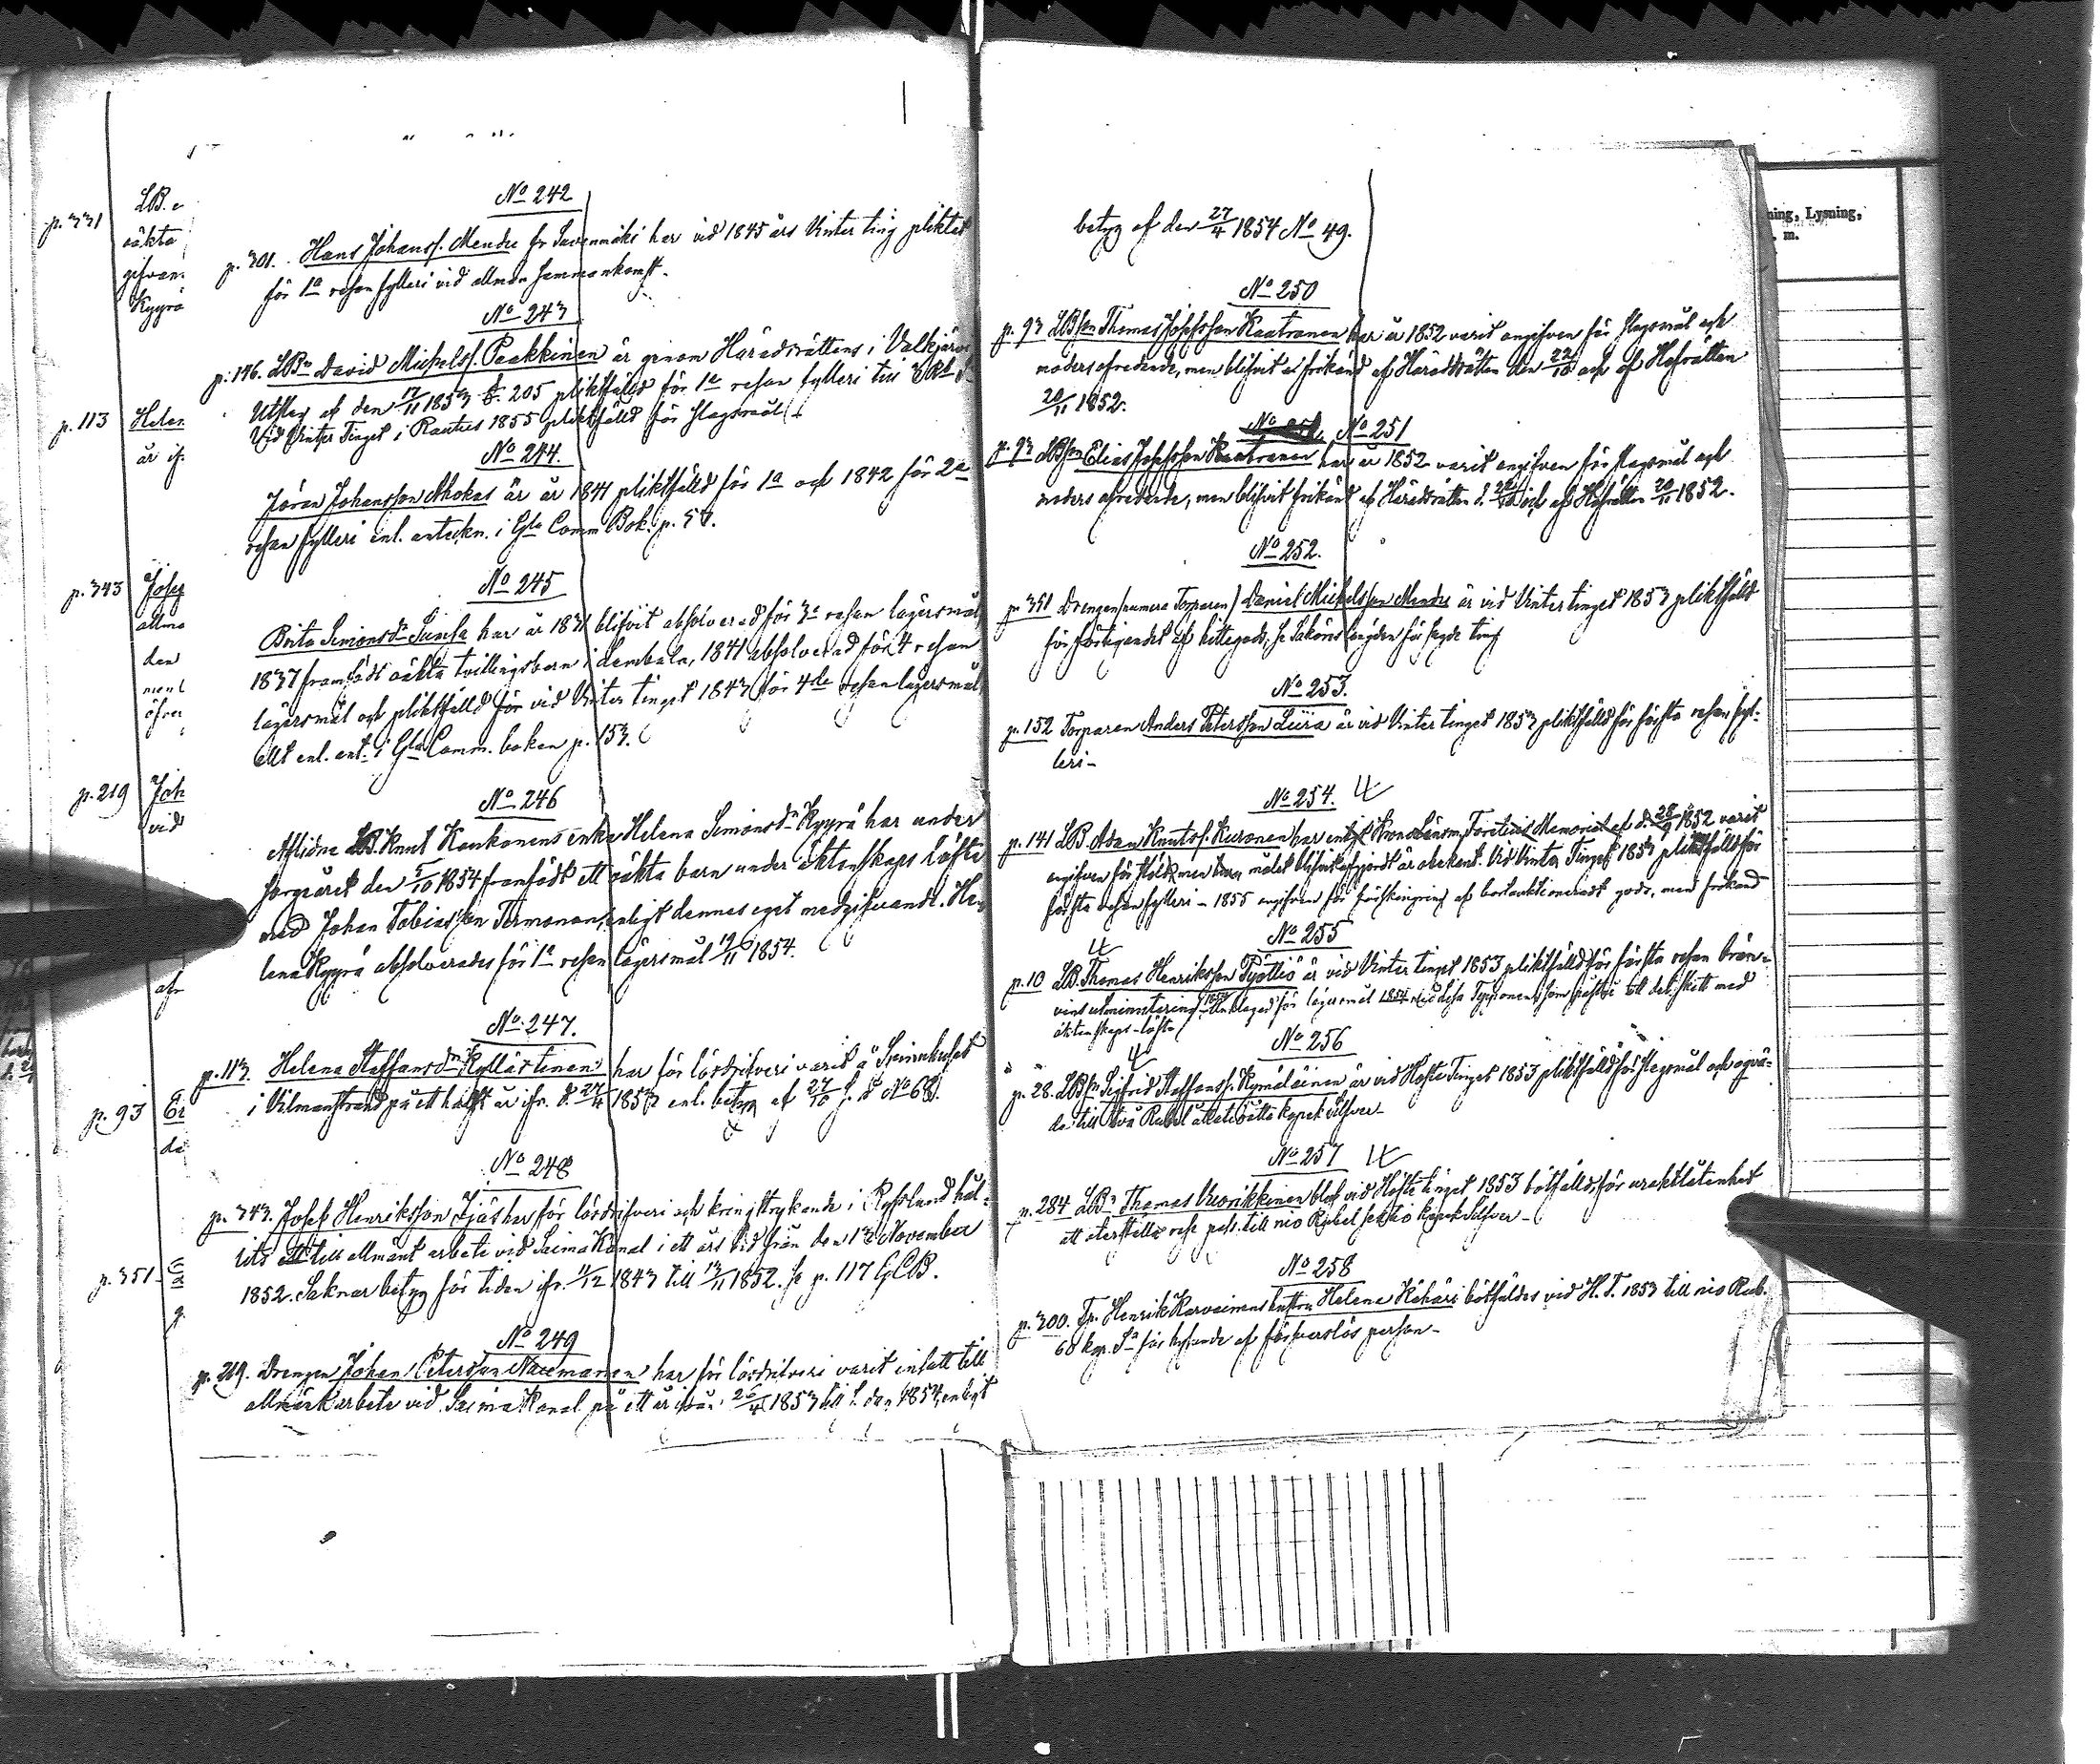 p. 331
LB.
oäkta
gifvan
Kyyrä
p. 113
Helen
är if.
p. 343
Josep
allmä
den
p. 219
Joh
vid
p. 93
de
p. 351
No 242
p. 301. Hans Johansf. Mendre fr Savenmäki har vid 1845 års Vinter ting pliktat
för 1a resan fylleri vid allmän sammankomst.
No 243
p. 146. LBn David Michelsf. Paakkinen är genom Häradsrättens i Valkjärvi
Utslag af den 17/11 1853 § 205 pliktfälld för 1a resan fylleri till 3 Rb S.
Vid Vinter Tinget i Rautus 1855 pliktfälld för slagsmål.
No 244.
Jöran Johansson Ahokas är år 1841 pliktfälld för 1a och 1842 för 2a
resan fylleri enl. anteckn. i Gla Comm Bok. p. 57.
No 245
Brita Simonsdr Sunfa har år 1831 blifvit absolverad för 3e resan lägersmål,
1837 framfödt oäkta tvillingsbarn i Lembala, 1841 absolverad för 4 resan
lägersmål och pliktfälld för vid Vinter tinget 1843 för 4de resan lägersmål
allt enl. ant. i Gla Comm. boken p. 153.
No 246
Aflidne LB. Knut Kaukonens enka Helena Simonsdr Kyyrä har under
förgåret den 5/10 1854 framfödt ett oäkta barn under äktenskaps löfte
med Johan Tobiasson Termonen, enligt dennes eget medgifvande. He-
lena Kyyrä absolverades för 1a resan lägersmål 19/11 1854.
No 247.
p. 113. Helena Staffansdr Kyllästinen har för lösdrifveri varit å Spinnhuset
i Vilmanstrand på ett halft år ifr. d. 27/4 1853 enl. betyg af 27/10 s. å No 68.
No 248
p. 343. Josef Henriksson Ijäs har för lösdrifveri och kringstrykande i Ryssland hål-
lits till allmänt arbete vid Saima Kanal i ett års tid från den 13 November
1852. Saknar betyg för tiden ifr. 11/12 1843 till 13/11 1852. se p. 117 GCB.
No 249
p. 219. Drengen Johan Petersson Naumanen har för lösdrifveri varit insatt till
allmänt arbete vid Saima Kanal på ett år ifrån 26/4 1853 till s. dag 1854, enligt
betyg af den 27/4 1854 No 49.
No 250
p. 93 LBson Thomas Josefsson Raatranen har år 1852 varit angifven för slagsmål och
moders ofredande, men blifvit frikänd af Häradsrätten den 22/10 och af Hofrätten
20/11 1852.
No 251
p. 93 LBson Elias Josefsson Raatranen har år 1852 varit angifven för slagsmål och
moders ofredande, men blifvit frikänd af Häradsrätten d. 22/10 och af Hofrätten 20/11 1852.
No 252.
p. 351 Drengen (numera Torparen) Daniel Michelsson Mendre är vid Vintertinget 1853 pliktfälld
för förtigandet af hittegods, se Saköreslängden för sagde ting
No 253.
p. 152 Torparen Anders Petersson Liira är vid Vintertinget 1853 pliktfälld för första resan fyl-
leri-
No 254.
p. 141 LB Adam Knutsf. Kuronen har enligt Kronolänsm. Memorial af d. 28/9 1852 varit
angifven för stöld, men målet blifvit afgjordt är obekant. Vid Vinter Tinget 1853 pliktfälld för
första resan fylleri - 1855 angifven för förskingring af bortauktioneradt gods, men frikänd
No 255
p. 10 LB. Thomas Henriksson Pyöttiö är vid Vinter tinget 1853 pliktfälld för första resan brän-
vins utminutering. Anklagad för lägersmål 1854 med Lisa Termonen som påstår till det skett med
äktenskaps-löfte
No 256
p. 28. LBsn Sigfrid Staffansf. Kymäläinen är vid Höste Tinget 1853 pliktfälld för slagsmål och oqvä-
de till två Rubel åttatioåtta kopek silfver-
No 257
p. 284 LBn Thomas Vuorikkinen blef vid Höste tinget 1853 bötfälld för uraktlåtenhet
att återställa rese pass till nio Rubel sextio kopek Silfver-
No 258
p. 300. Tp. Henrik Karvainens hustru Helena Kähäri bötfäldes vid H. T. 1853 till nio Rub.
60 kop. Sr för hysande af försvarslös person-
ning, Lysning,
m.